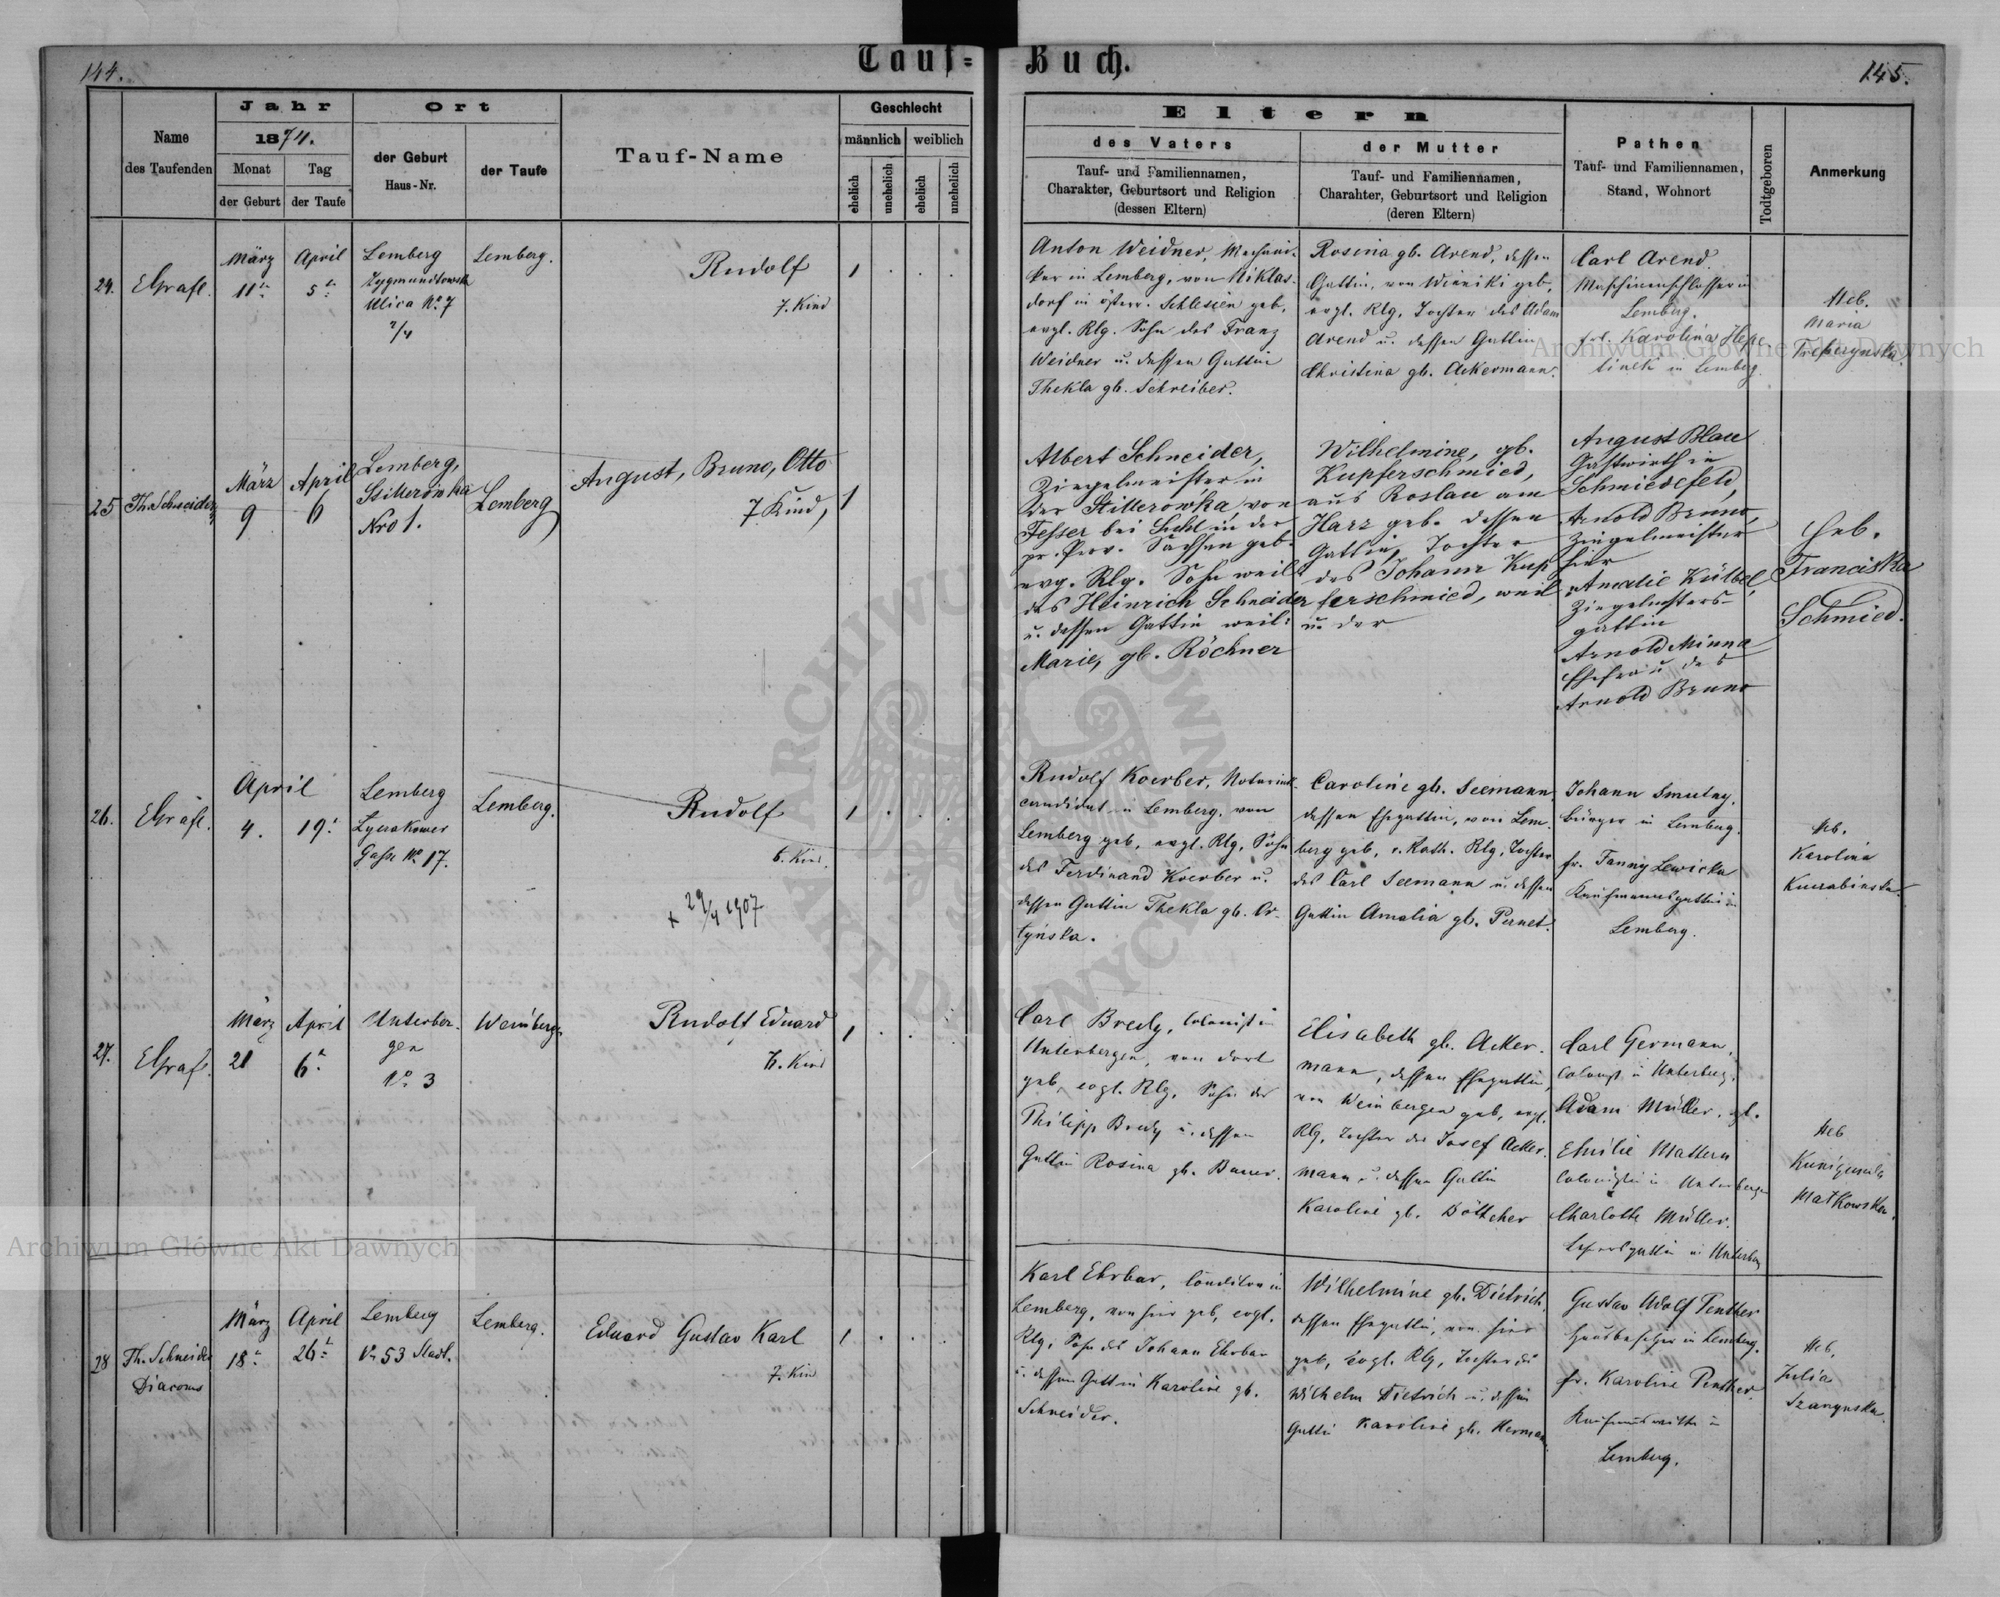 144.
Tauf-
Buch.
145.
Name
des Taufenden
Jahr
1874.
Monat
der Geburt
Tag
der Taufe
Ort
der Geburt
Haus-Nr.
der Taufe
Tauf-Name
Geschlecht
männlich
weiblich
ehelich
unehelich
ehelich
unehelich
Eltern
des Vaters
Tauf- und Familiennamen,
Charakter, Geburtsort und Religion
(dessen Eltern)
der Mutter
Tauf- und Familiennamen,
Charahter, Geburtsort und Religion
(deren Eltern)
Pathen
Tauf- und Familiennamen,
Stand, Wohnort
Todtgeboren
Anmerkung
24.
EGrafl.
März
11
April
5
Lemberg
Zygmundtowska
Ulica No 7
2/4
Lemberg.
Rudolf
7. Kind
1
Anton Weidner, Mechani-
ker in Lemberg, von Niklas-
dorf in österr. Schlesien geb,
evgl. Rlg. Sohn des Franz
Weidner u. dessen Gattin
Thekla gb. Schreiber.
Rosina gb. Arend, dessen
Gattin, von Winniki geb,
evgl. Rlg, Tochter des Adam
Arend u. dessen Gattin
Christina gb. Ackermann.
Carl Arend
Maschinenschlosser in
Lemberg.
Karolina
in Lemberg
Heb.
Maria
25
Th. Schneider
März
9
April
6
Lemberg,
Stillerówka
Nro 1.
Lemberg
August, Bruno, Otto
7 Kind,
1
Albert Schneider,
Ziegelmeister in
der Stillerowka, von
bei Suhl in der
pr. Prov. Sachsen geb.
evg. Rlg. Sohn weil.
des Heinrich Schneider
u. dessen Gattin weil.
Marie, gb. Röchner
Wilhelmine, gb.
Kupferschmied,
aus Roslau am
Harz geb. dessen
Gattin, Tochter
des Johann Kup
ferschmied, weil
u. der
August Blau
Gastwirth in
Schmiedefeld,
Arnold Bruno,
Ziegelmeister
hier
Amalie Külbel,
Ziegelmsters-
gattin
Arnold Minna
Ehefrau des
Arnold Bruno
Heb.
Franciska
Schmied.
26.
EGrafl.
April
4.
19.
Lemberg
Łyczakower
Gasse No 17.
Lemberg.
Rudolf
6. Kind.
+ 29/4 1907
1
Rudolf Koerber, Notariats-
candidat in Lemberg, von
Lemberg geb, evgl. Rlg, Sohn
des Ferdinand Koerber u.
dessen Gattin Thekla gb. Or-
tyńska.
Caroline gb. Seemann,
dessen Ehegattin, von Lem-
berg geb, r. Kath. Rlg, Tochter
des Carl Seemann u. dessen
Gattin Amalia gb. Pernet.
Johann Smutny,
Bürger in Lemberg.
fr. Fanny Lewicka
Kaufmannsgattin in
Lemberg.
Heb.
Karolina
27.
EGrafl.
März
21
April
6
Unterber-
gen
No 3
Weinbergen
Rudolf Eduard
Kind
1
Carl Bredy, Colonist in
Unterbergen, von dort
geb, evgl. Rlg, Sohn des
Philipp Bredy u. dessen
Gattin Rosina gb. Bauer.
Elisabeth gb. Acker-
mann, dessen Ehegattin,
von Weinbergen geb, evgl.
Rlg, Tochter des Josef Acker-
mann u. dessen Gattin
Karoline gb. Böttcher
Carl Germann,
Colonist in Unterberg.
Adam Müller,
Emilie Mattern
Colonistin in Unterbergen
Charlotte Müller.
in Unterberg
Heb
Kunigunda
Matkowska.
28
Th. Schneider
Diaconus
März
18
April
26
Lemberg
No 53 Stadt.
Lemberg.
Eduard Gustav Karl
7. Kind
1
Karl Ehrbar, Conditor in
Lemberg, von hier geb, evgl.
Rlg, Sohn des Johann Ehrbar
u. dessen Gattin Karoline gb.
Schneider.
Wilhelmine gb. Dietrich,
dessen Ehegattin, von hier
geb, evgl. Rlg, Tochter des
Wilhelm Dietrich u. dessen
Gattin Karoline gb. Hermann.
Gustav Adolf Penther
Hausbesitzer in Lemberg.
fr. Karoline Penther
Lemberg.
Heb,
Julia
Archiwum Główne Akt Dawnych
Archiwum Główne Akt Dawnych
ARCHIWUM GŁÓWNE AKT DAWNYCH